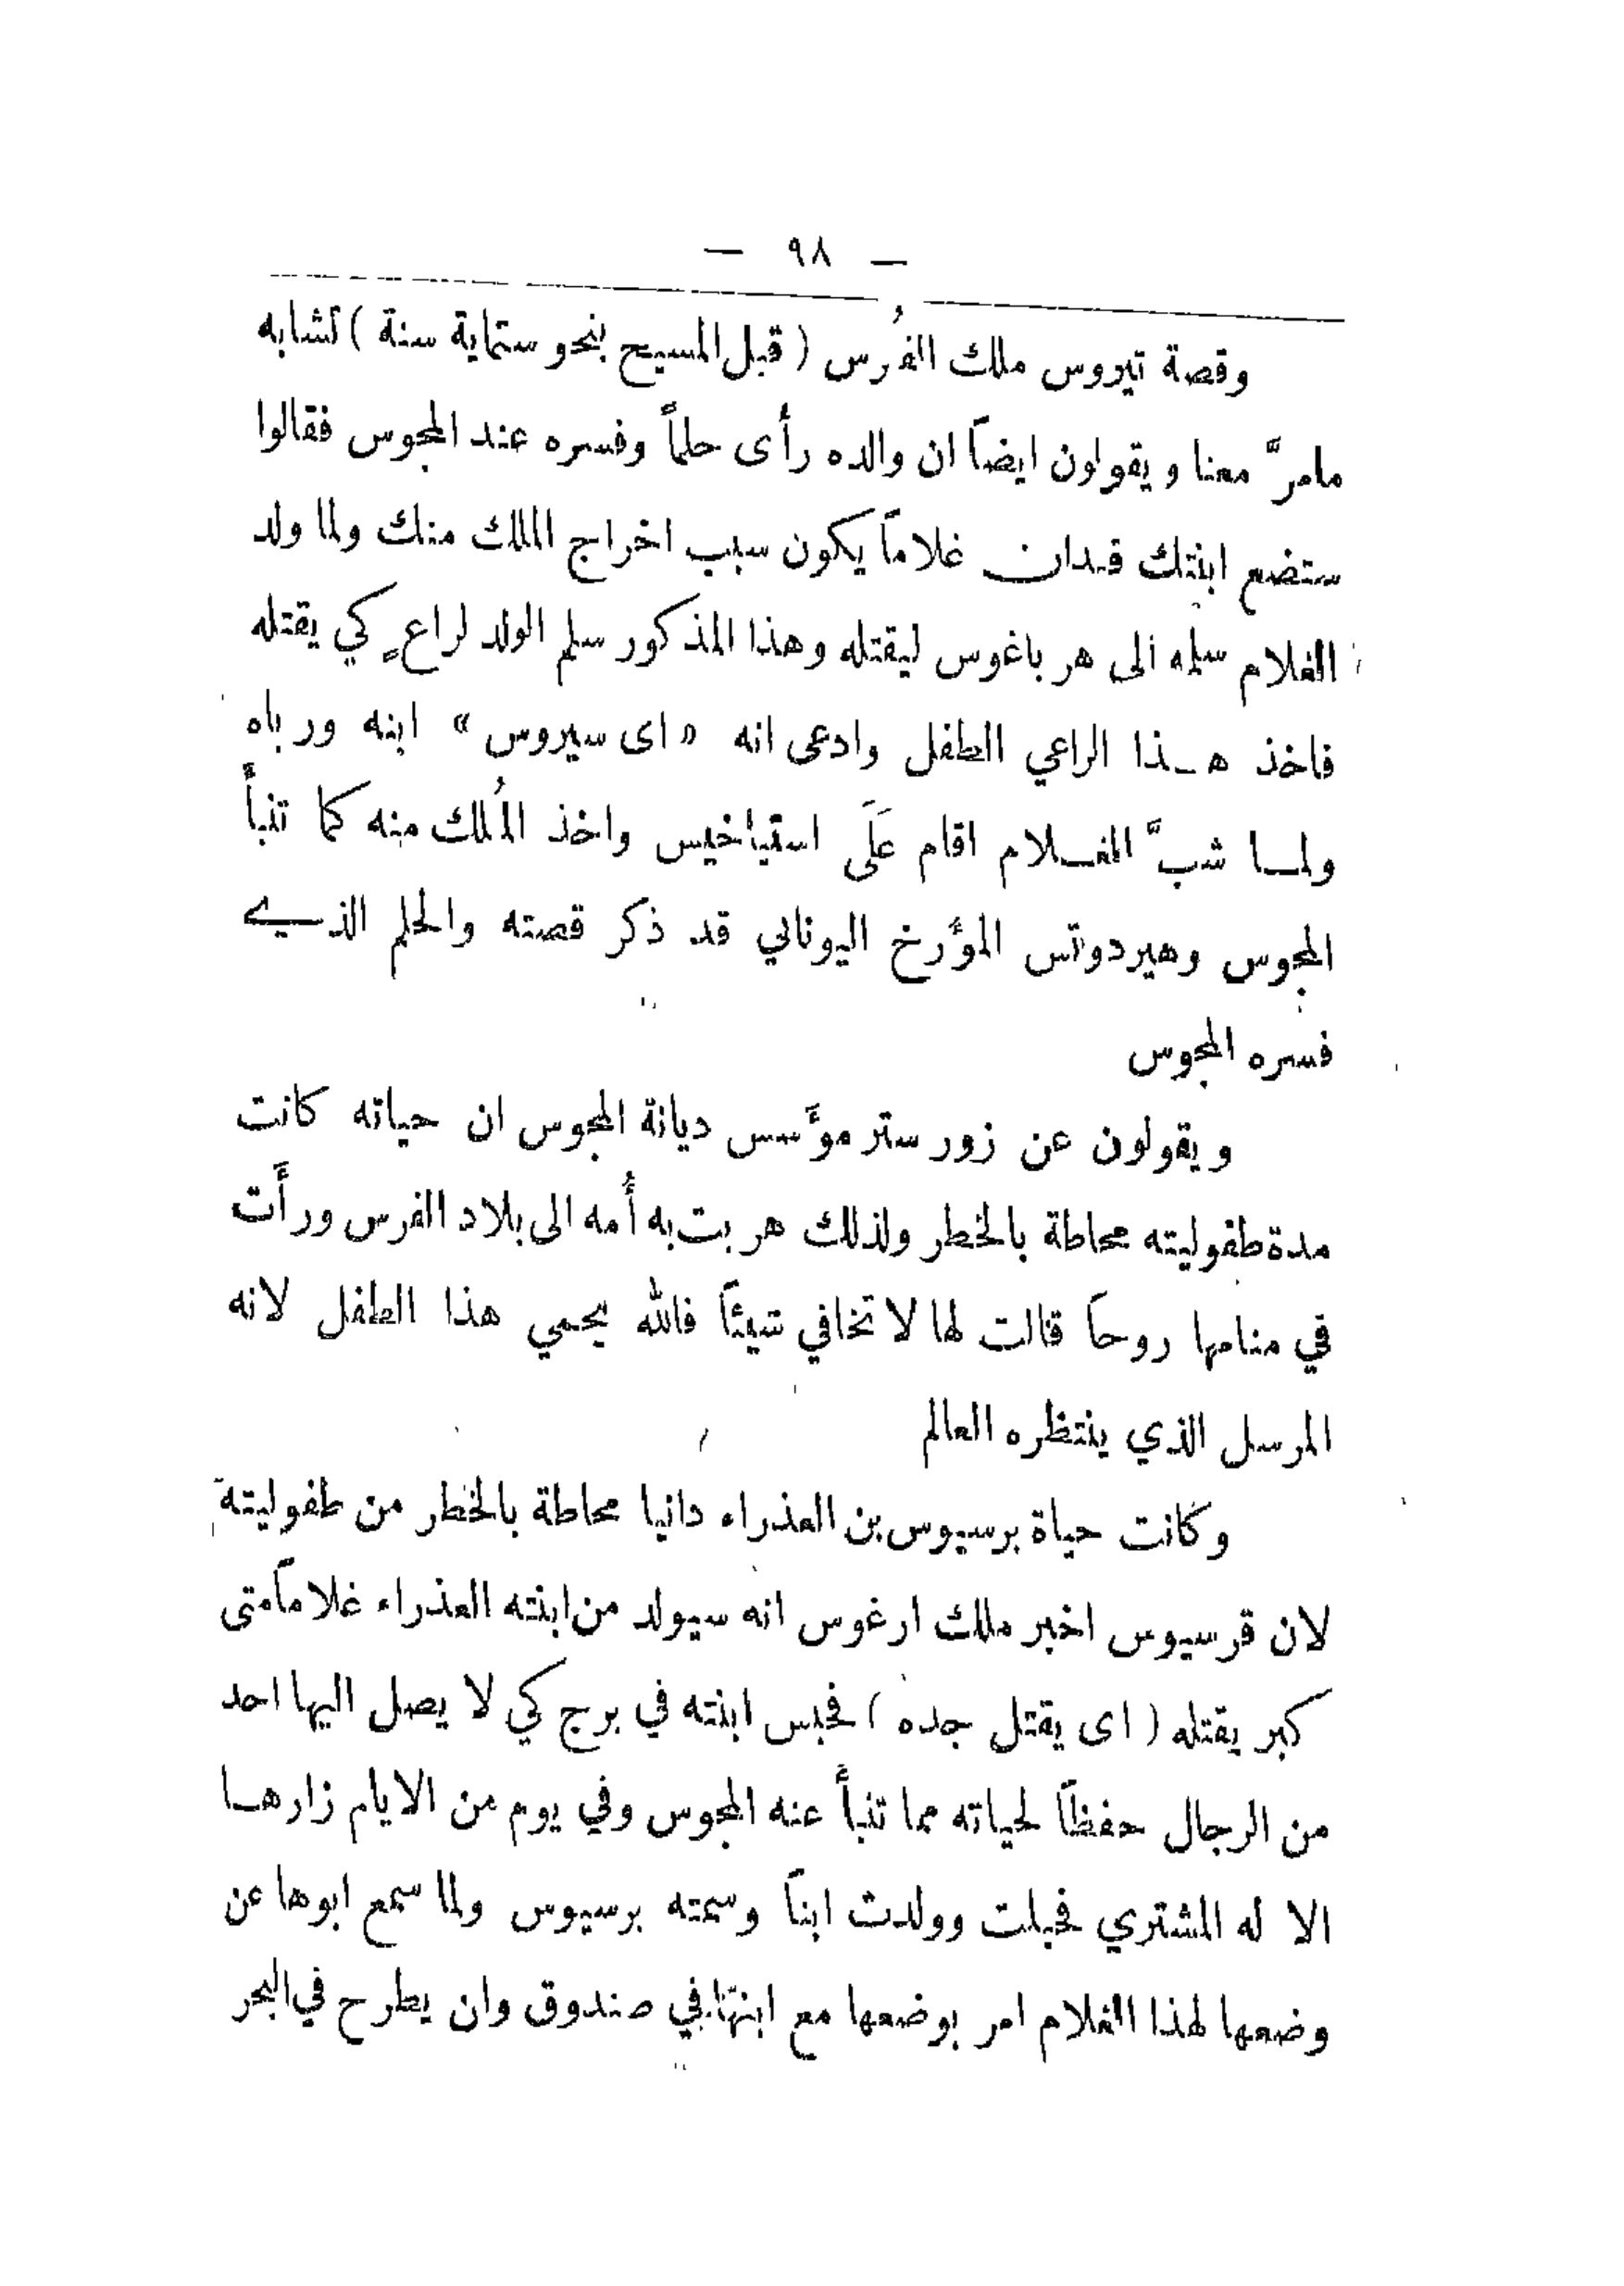 — ٩٨ —
وقصة تيروس ملك الفُرس ( قبل المسيح بنحو ستماية سنة ) تشابه
مامرَّ معنا ويقولون ايضاً ان والده رأى حلماً وفسره عند المجوس فقالوا
ستضع ابنتك قدان غلاماً يكون سبب اخراج الملك منك ولما ولد
الغلام سلمه الى هرباغوس ليقتله وهذا المذكور سلم الولد لراعٍ كي يقتله
فاخذ هـذا الراعي الطفل وادعى انه « اى سيروس » ابنه ورباه
ولمـا شبَّ الغـلام اقام عَلَى استياخيس واخذ المُلك منه كما تنبأَ
المجوس وهيردوتس المؤَرخ اليوناني قد ذكر قصته والحلم الذـي
فسره المجوس
ويقولون عن زورستر مؤَسس ديانة المجوس ان حياته كانت
مدة طفوليته محاطة بالخطر ولذلك هربت به أُمه الى بلاد الفرس ورأَت
في منامها روحاً قالت لها لا تخافي شيئاً فالله يحمي هذا الطفل لانه
المرسل الذي ينتظره العالم
وكانت حياة برسيوس بن العذراء دانيا محاطة بالخطر من طفوليته
لان قرسيوس اخبر ملك ارغوس انه سيولد من ابنته العذراء غلاماً متى
كبر يقتله ( اى يقتل جده ) فحبس ابنته في برج كي لا يصل اليها احد
من الرجال حفظاً لحياته مما تنبأَ عنه المجوس وفي يوم من الايام زارهـا
الا له المشتري فحبلت وولدت ابناً وسمته برسيوس ولما سمع ابوها عن
وضعها لهذا الغلام امر بوضعها مع ابنها في صندوق وان يطرح في البحر